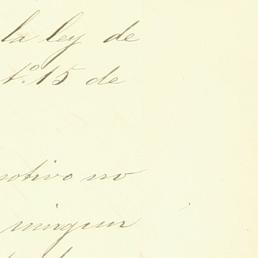 la ley de
t.º 15 de
motivo no
ningun